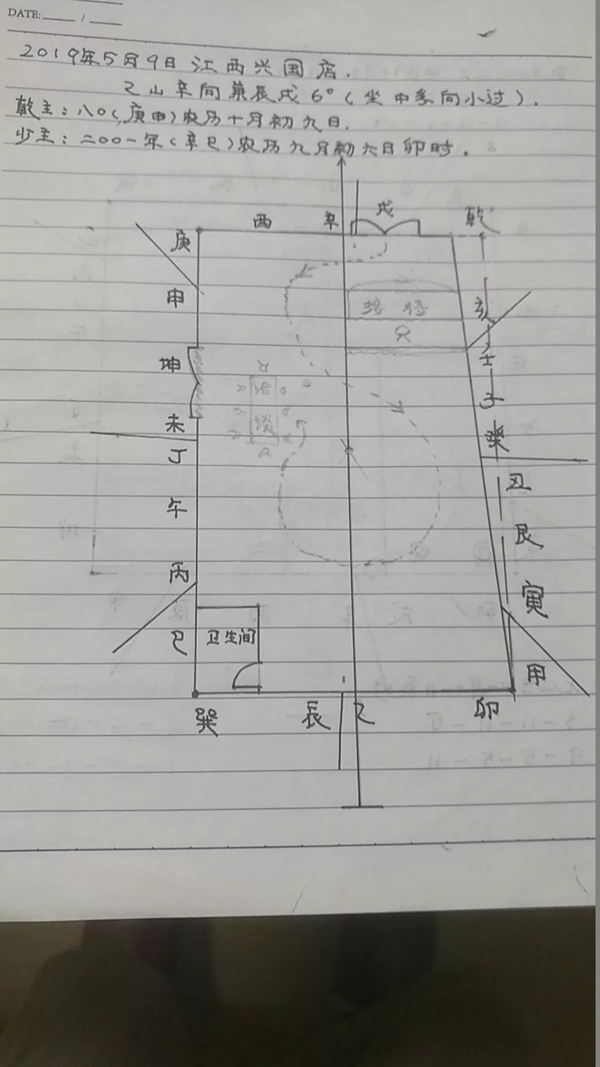 DATE: / /
2019年5月9日 江西兴国店.
乙山辛向兼辰戌6°(坐中孚向小过).
乾主:八0(庚申)农历十月初九日.
少主:二00一年(辛巳)农历九月初六日卯时.
庚 酉 辛 戌 乾
申
接待
亥
壬
坤
子
洽谈
未
癸
丁
丑
午
艮
丙
寅
巳 卫生间
甲
巽 辰 乙 卯